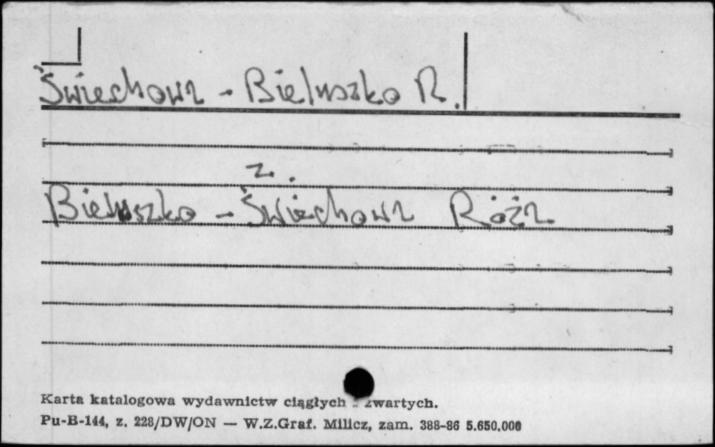 Świechowa - Bieluszko R.
z.
Bieluszko - Świechowa Róża
Karta katalogowa wydawnictw ciągłych i zwartych.
Pu-B-144, z. 228/DW/ON — W.Z.Graf. Milicz, zam. 388-86 5.650.000